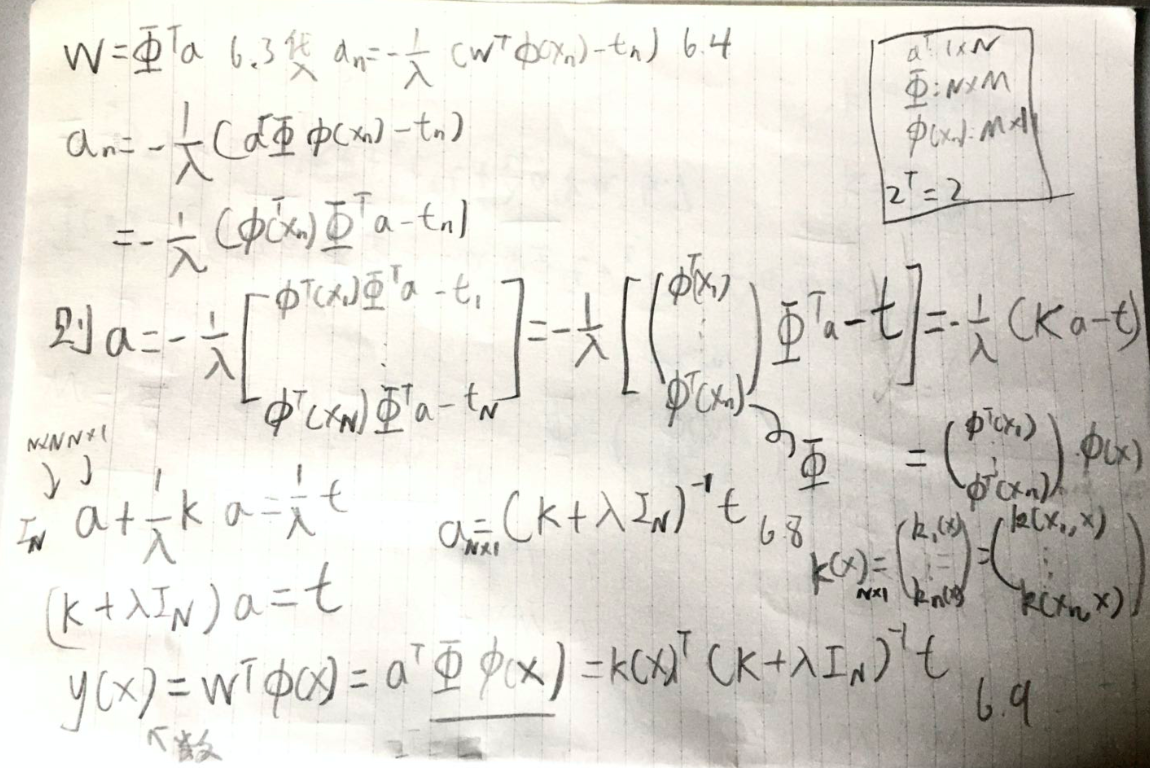 W=Φᵀa 6.3代入 aₙ=-1/λ (wᵀφ(xₙ)-tₙ) 6.4
aᵀ: 1×N
Φ: N×M
φ(xₙ): M×1
2ᵀ=2
aₙ=-1/λ (aᵀΦ φ(xₙ)-tₙ)
=-1/λ (φᵀ(xₙ)Φᵀa-tₙ)
则 a=-1/λ [φᵀ(x₁)Φᵀa-t₁ ⋮ φᵀ(x_N)Φᵀa-t_N] =-1/λ [(φᵀ(x₁) ⋮ φᵀ(xₙ)) Φᵀa-t] =-1/λ (Ka-t)
Φ
N×N N×1
I_N a+1/λ K a=1/λ t
a=(K+λI_N)⁻¹t 6.8
N×1
=(φᵀ(x₁) ⋮ φᵀ(xₙ))·φ(x)
k(x)=(k₁(x) ⋮ kₙ(x))=(k(x₁,x) ⋮ k(xₙ,x))
N×1
(K+λI_N)a=t
y(x)=wᵀφ(x)=aᵀΦφ(x)=k(x)ᵀ(K+λI_N)⁻¹t 6.9
数